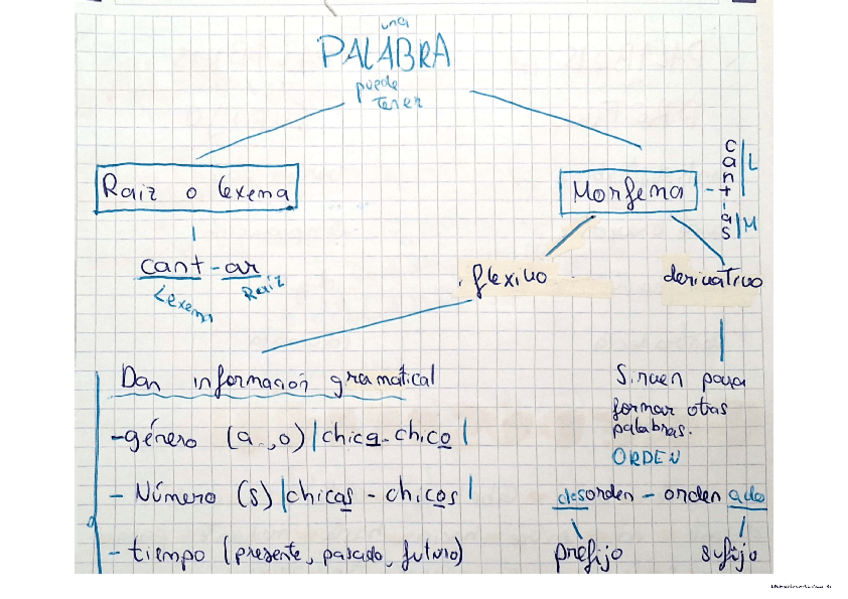 una
PALABRA
puede
tener
Raiz o lexema
Morfema
cant-as
L
M
cant-ar
Lexema
Raiz
flexivo
derivativo
Dan información gramatical
-género (a.,o) |chica-chico|
- Número (s) |chicas - chicos|
- tiempo (presente, pasado, futuro)
Sirven para
formar otras
palabras.
ORDEN
desorden - ordenado
prefijo
sufijo